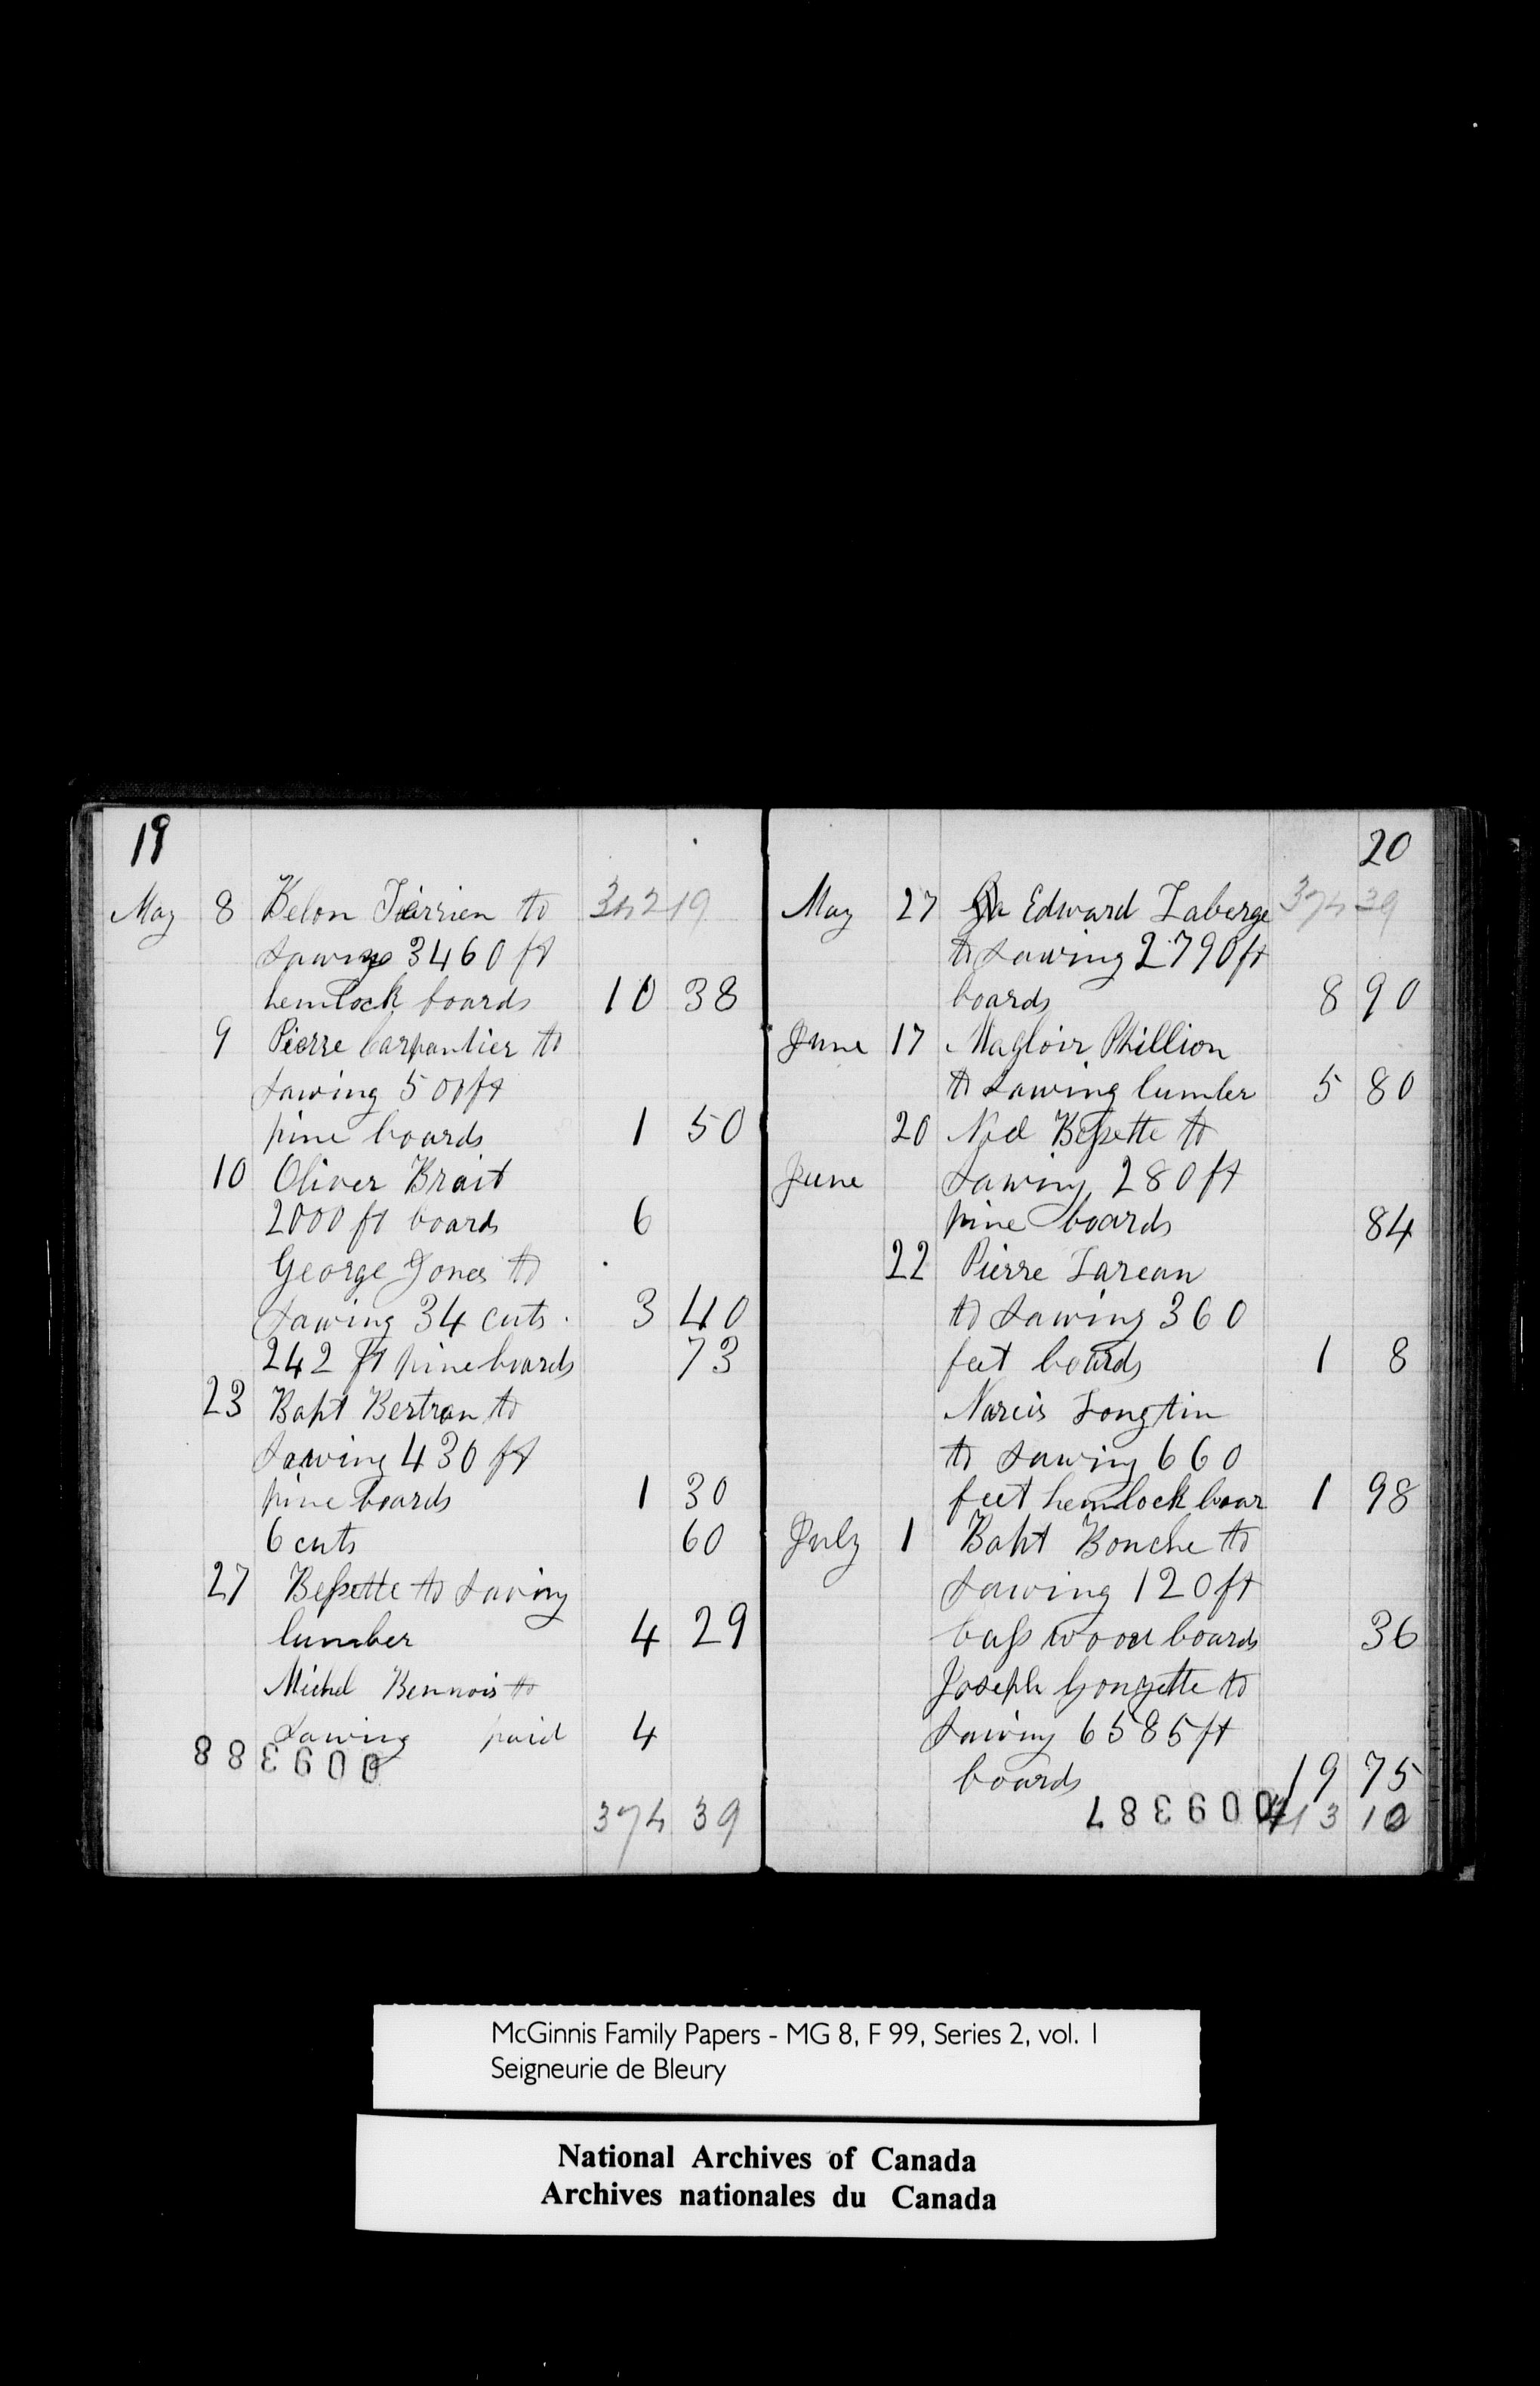 19
May 8 Belon Tierrien to 342 19
sawing 3460 ft
hemlock boards 10 38
9 Pierre Carpantier to
sawing 500 ft
pine boards 1 50
10 Oliver Brait
2000 ft boards 6
George Jones to
sawing 34 cuts 3 40
242 ft pine boards 73
23 Bapt Bertran to
sawing 430 ft
pine boards 1 30
6 cuts 60
27 Bessette to sawing
lumber 4 29
Michel Bennois to
sawing paid 4
009388
374 39
20
May 27 Edward Laberge 374 39
to sawing 2790 ft
boards 8 90
June 17 Magloir Phillion
to sawing lumber 5 80
20 Noel Bessette to
June sawing 280 ft
pine boards 84
22 Pierre Lareau
to sawing 360
feet boards 1 8
Narcis Longtin
to sawing 660
feet hemlock boar 1 98
July 1 Bapt Bouche to
sawing 120 ft
bass wood boards 36
Joseph Gouyette to
sawing 6585 ft
boards 19 75
009387 413 10
McGinnis Family Papers - MG 8, F 99, Series 2, vol. 1
Seigneurie de Bleury
National Archives of Canada
Archives nationales du Canada